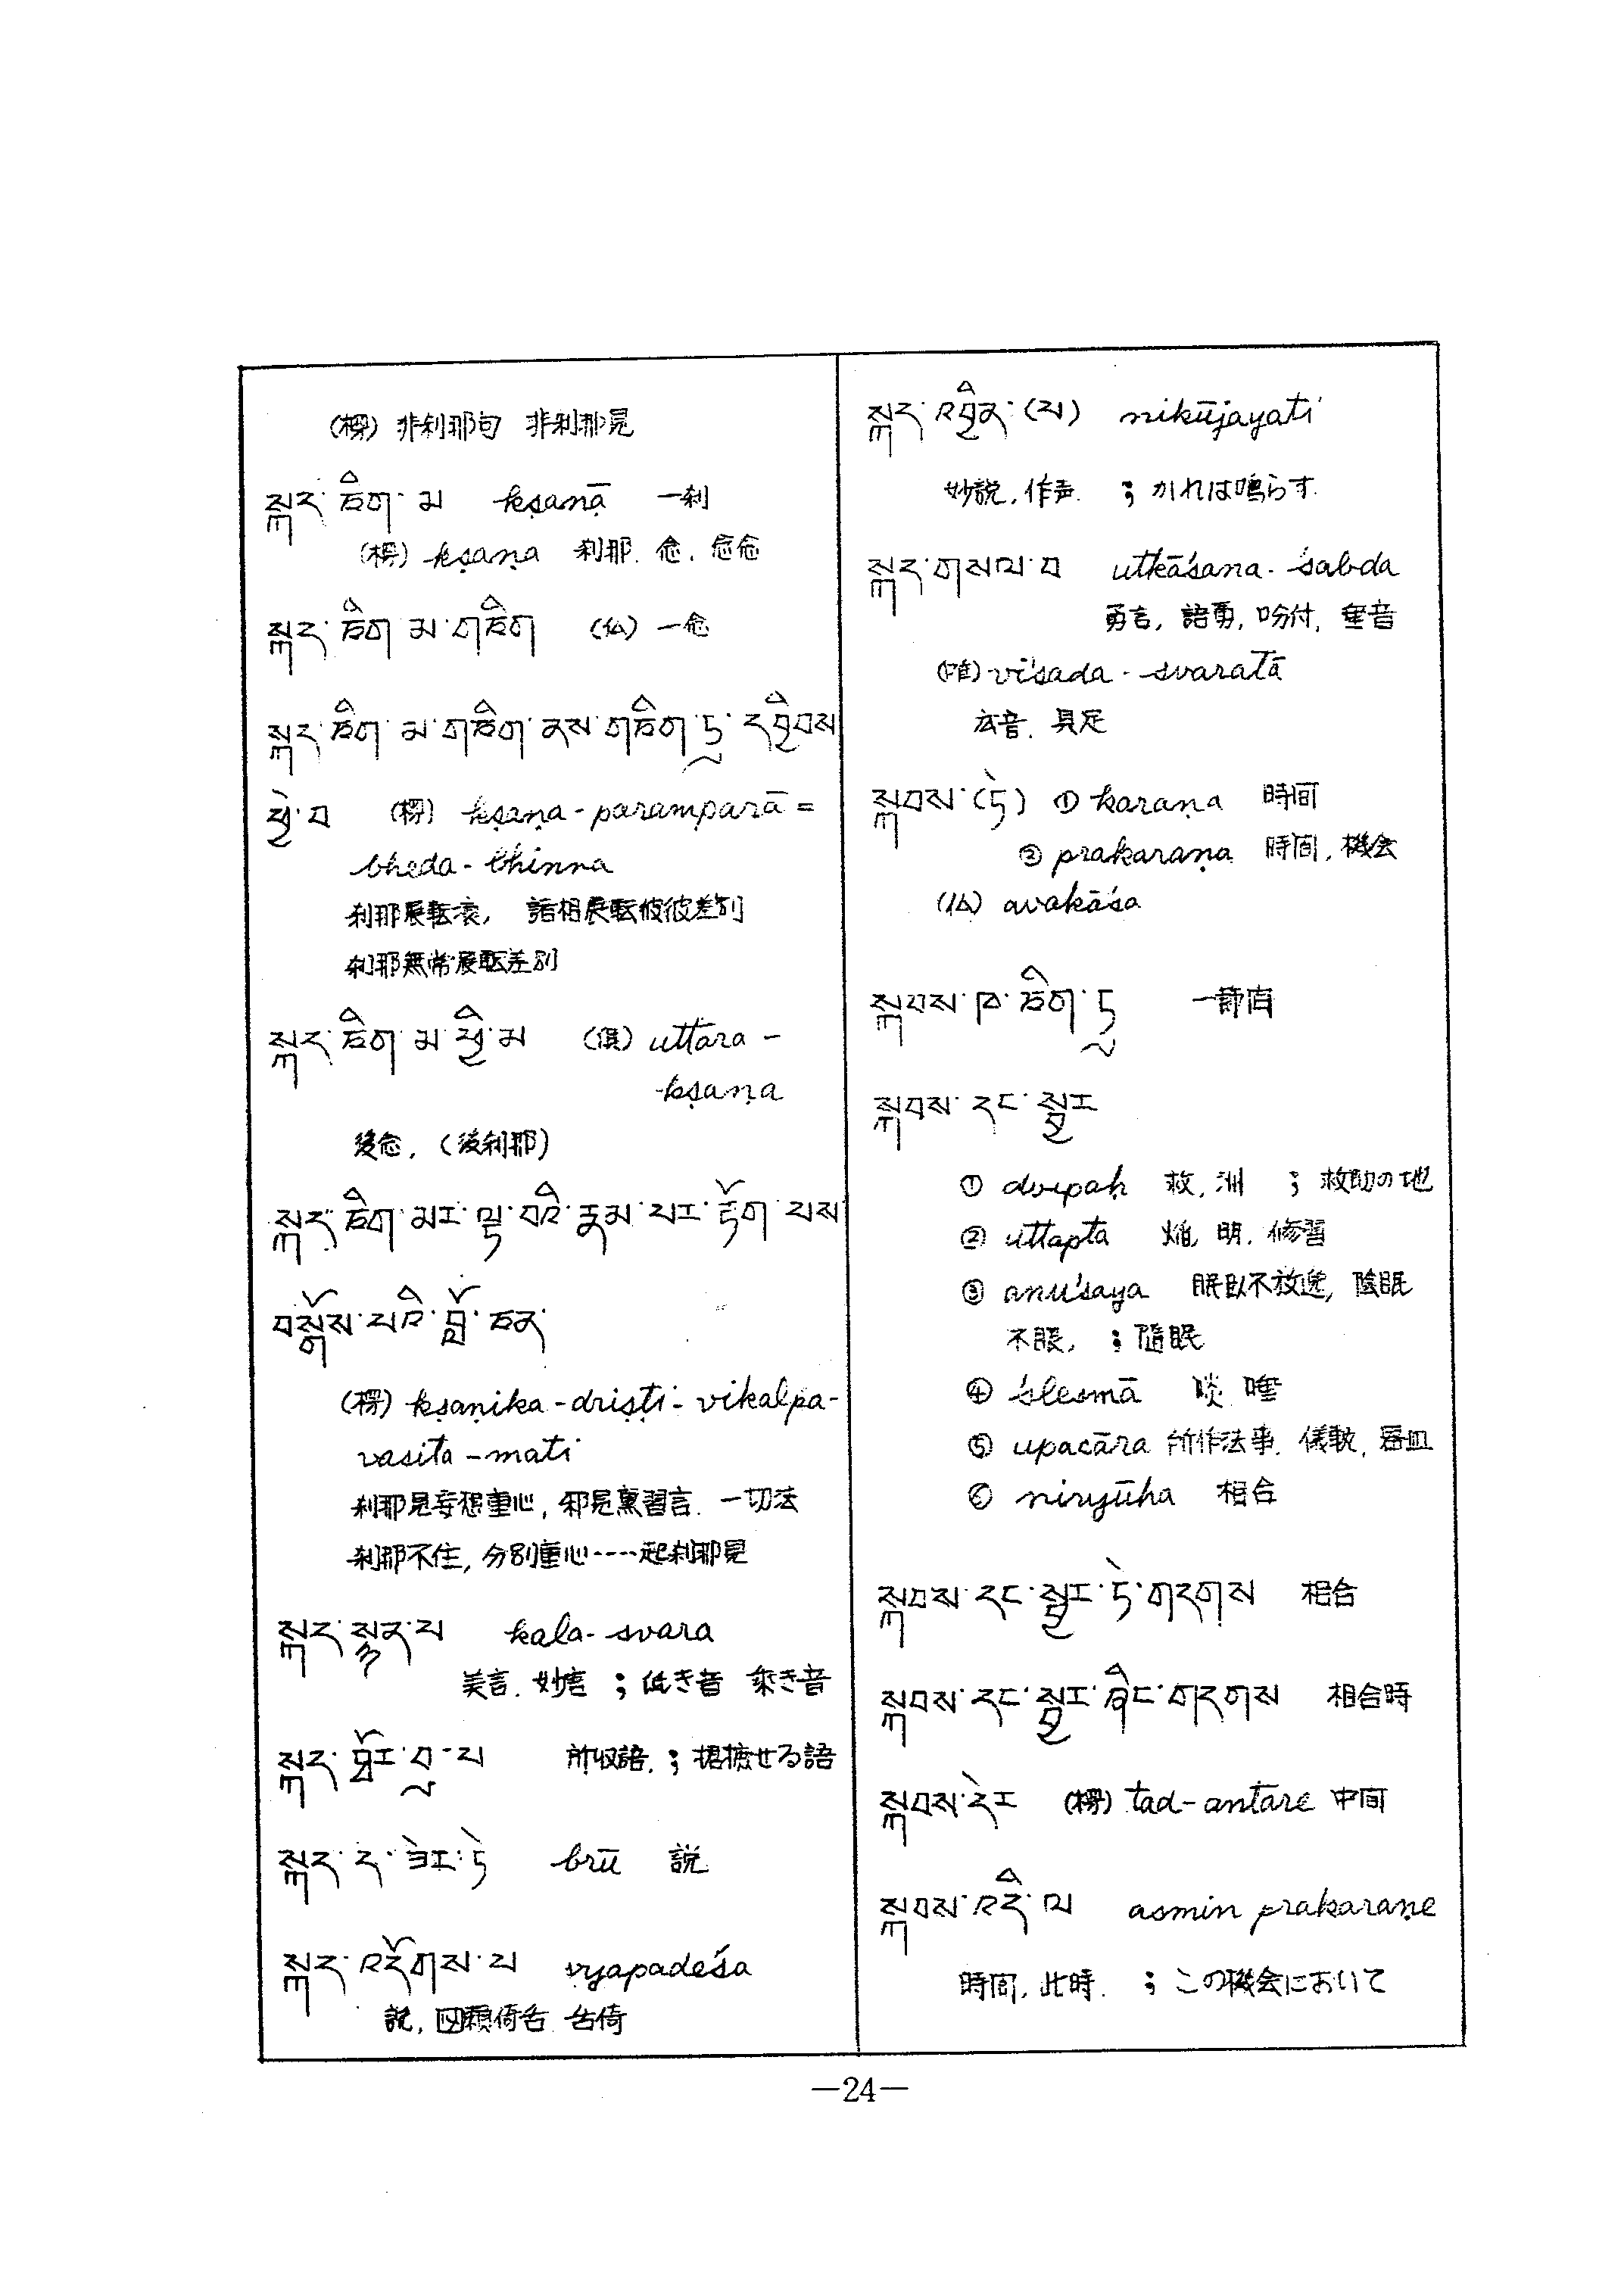 (楞) 非刹那句 非刹那見
སྐད་ཅིག་མ kṣaṇā 一刹
(楞) kṣaṇa 刹那. 念. 念念
སྐད་ཅིག་མ་གཅིག (仏) 一念
སྐད་ཅིག་མ་གཅིག་ནས་གཅིག་ཏུ་དབྱིབས
ཕྱེ་བ (楞) kṣaṇa-paraṃparā=
bheda-bhinna
刹那展転壊, 諸相展転彼彼差別
刹那無常展転差別
སྐད་ཅིག་མ་ཕྱི་མ (倶) uttara-
-kṣaṇa
後念, (後刹那)
སྐད་ཅིག་མར་ལྟ་བའི་རྣམ་པར་རྟོག་པས་
བསྒོས་པའི་བློ་ཅན་
(楞) kṣaṇika-driṣṭi-vikalpa-
vasita-mati
刹那見妄想熏心, 邪見熏習言. 一切法
刹那不住, 分別熏心‥‥起刹那見
སྐད་སྙན་པ kala-svara
美言. 妙言 ; 低き音 柔き音
སྐད་བློར་བུ་པ 所収語. ;
སྐད་ད་ཟེར་ཏེ brū 説
སྐད་འདོགས་པ vyapadeśa
説,
སྐད་འབྱིན་(པ) nikūjayati
妙説, 作声. ; かれは鳴らす.
སྐད་གསལ་བ utkāśana-śabda
勇言, 語勇, 吩付, 重音
(唯) viśada-svaratā
広音. 具足
སྐབས་(ཏེ) ① karaṇa 時間
② prakaraṇa 時間, 機会
(仏) avakāśa
སྐབས་ཁ་ཅིག་ཏུ 一節内
སྐབས་དང་སྦྱར
① dvipaḥ 救, 洲 ; 救助の地
② uttapta 焔, 明. 修習
③ anuśaya 眠臥不放逸, 陰眠
不眠, ; 随眠
④ śleṣmā 啖 唾
⑤ upacāra 所作法事. 儀軌, 器皿
⑥ niryūha 相合
སྐབས་དང་སྦྱར་ཏེ་གདགས 相合
སྐབས་དང་སྦྱར་ཞིང་གདགས 相合時
སྐབས་དེར (楞) tad-antare 中間
སྐབས་འདི་ལ asmin prakaraṇe
時間, 此時. ; この機会において
—24—